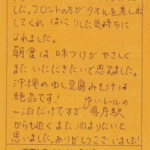 した。フロントの方がタオルを差し出
してくれ ほっこりした気持ちに
なれました。
朝食は味つけがやさしく
またいただきたいと思えました。
沖縄のゆし豆腐みそ汁は
絶品です! ゆいレールの
一泊だけですが 県庁駅
からも近くまた泊まりたいと
思いました。ありがとうございました!